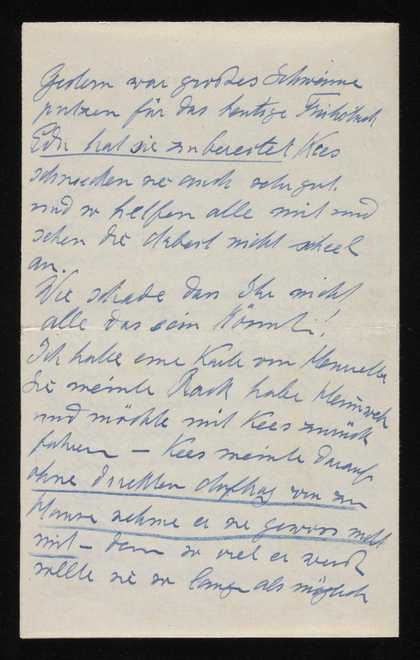 Gestern war großes Schwämme
putzen für das heutige Frühstück
Edi hat sie zubereitet Kees
schmecken sie auch sehr gut.
und so helfen alle mit und
sehen die Arbeit nicht scheel
an.
Wie schade dass Ihr nicht
alle da sein könnt!
Ich habe eine Karte von Manuela
Sie meinte habe Heimweh
und möchte mit Kees zurück
fahren – Kees meinte darauf
ohne direkten Auftrag von zu
Hause nehme er sie gewiss nicht
mit – denn so viel er weiß
sollte sie so lange als möglich